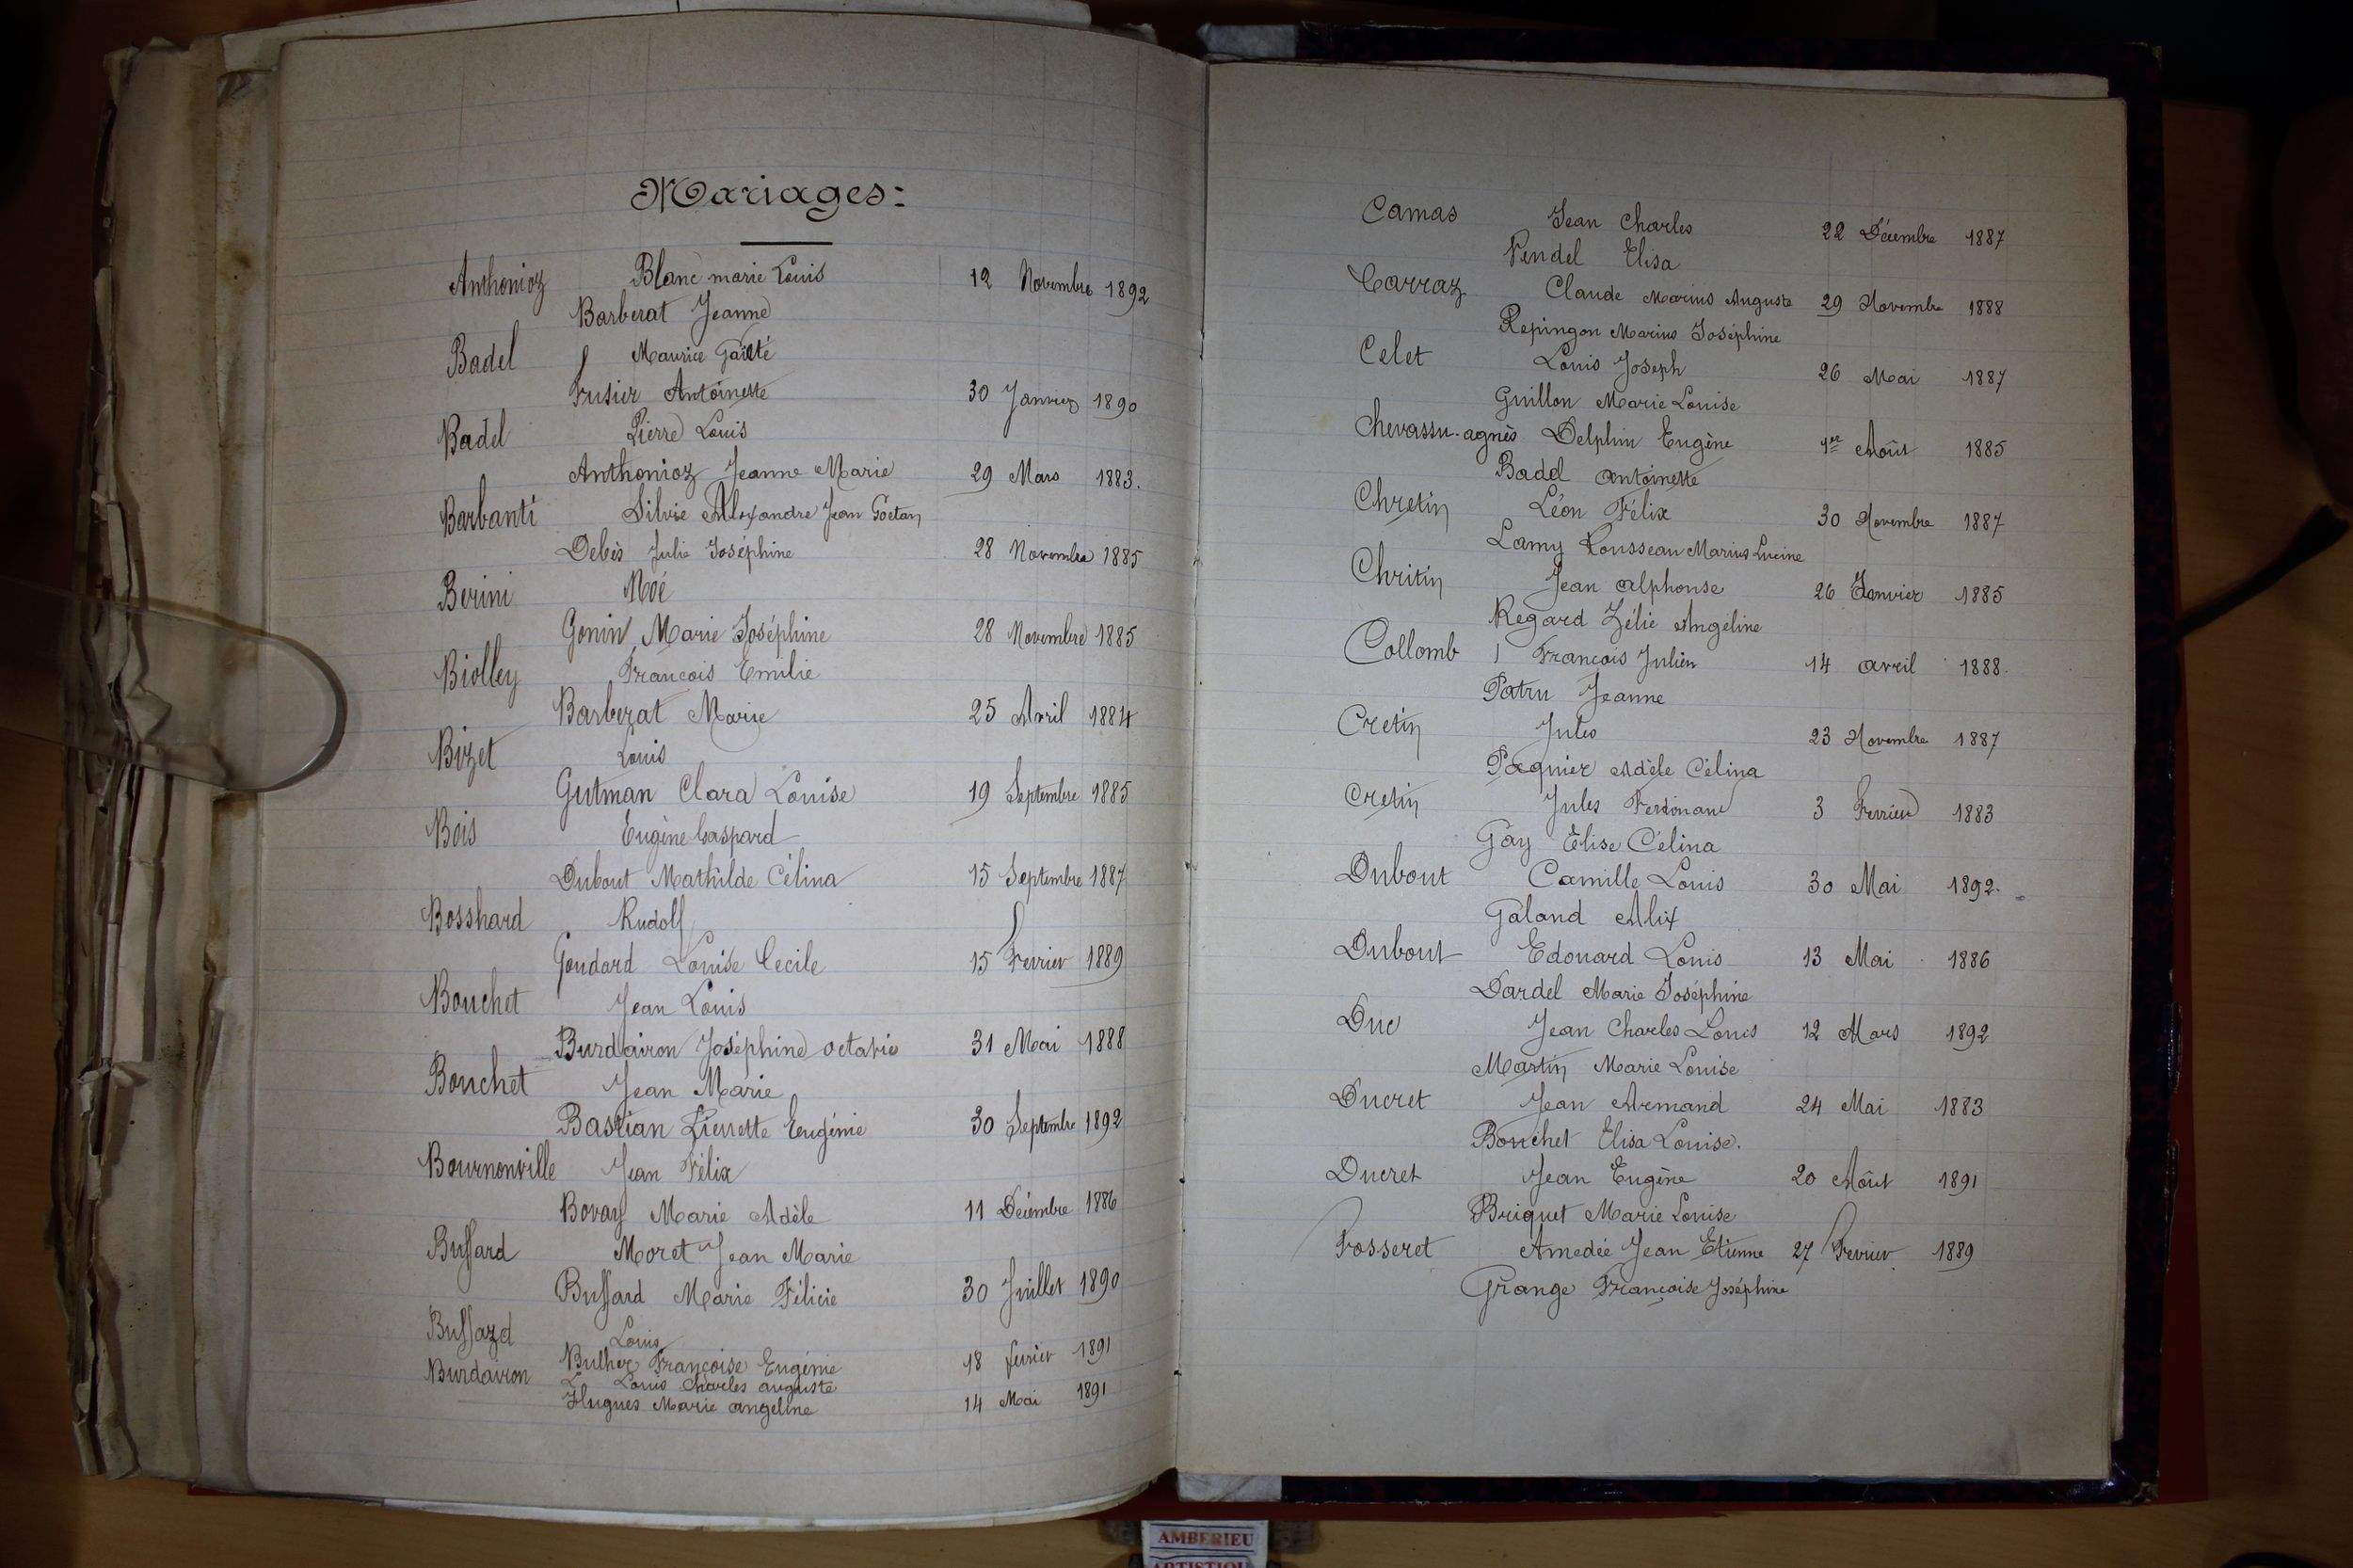 Mariages:
Anthonioz Blanc marie Louis 12 Novembre 1892
Barberat Jeanne
Badel Maurice Gaïté
Fusier Antoinette 30 Janvier 1890
Badel Pierre Louis
Anthonioz Jeanne Marie 29 Mars 1883.
Barbanti Silvie Alexandre Jean Goetan
Debès Julie Joséphine 28 Novembre 1885
Berini Noé
Gonin Marie Joséphine 28 Novembre 1885
Biolley François Emilie
Barberat Marie 25 Avril 1884
Bizet Louis
Gutman Clara Louise 19 Septembre 1885
Bois Eugène Gaspard
Dubout Mathilde Célina 15 Septembre 1887
Bosshard Rudolf
Goudard Louise Cecile 15 Fevrier 1889
Bouchet Jean Louis
Burdairon Joséphine octavie 31 Mai 1888
Bouchet Jean Marie
Bastian Pierrette Eugénie 30 Septembre 1892
Bournonville Jean Félix
Bovay Marie Adèle 11 Décembre 1886
Buffard Moret Jean Marie
Buffard Marie Félicie 30 Juillet 1890
Buffard Louis
Bulher Françoise Eugénie 18 fevrier 1891
Burdairon Louis Charles auguste
Hugues Marie angeline 14 Mai 1891
Camas Jean Charles 22 Décembre 1887
Vendel Elisa
Carraz Claude Marius Auguste 29 Novembre 1888
Repingon Marius Joséphine
Celet Louis Joseph 26 Mai 1887
Guillon Marie Louise
Chevassu-agnès Delphin Eugène 1er Août 1885
Badel antoinette
Chretin Léon Félix 30 Novembre 1887
Lamy Rousseau Marius Lucine
Chritin Jean alphonse 26 Janvier 1885
Regard Zélie Angéline
Collomb François Julien 14 avril 1888.
Patru Jeanne
Cretin Jules 23 Novembre 1887
Pagnier Adèle Célina
Cretin Jules Ferdinand 3 Fevrier 1883
Gay Elise Célina
Dubout Camille Louis 30 Mai 1892.
Galand Alix
Dubout Edouard Louis 13 Mai 1886
Dardel Marie Joséphine
Duc Jean Charles Louis 12 Mars 1892
Martin Marie Louise
Ducret Jean Armand 24 Mai 1883
Bouchet Elisa Louise.
Ducret Jean Eugène 20 Août 1891
Briquet Marie Louise
Fosseret Amedée Jean Etienne 27 Fevrier 1889
Grange Françoise Joséphine
AMBERIEU